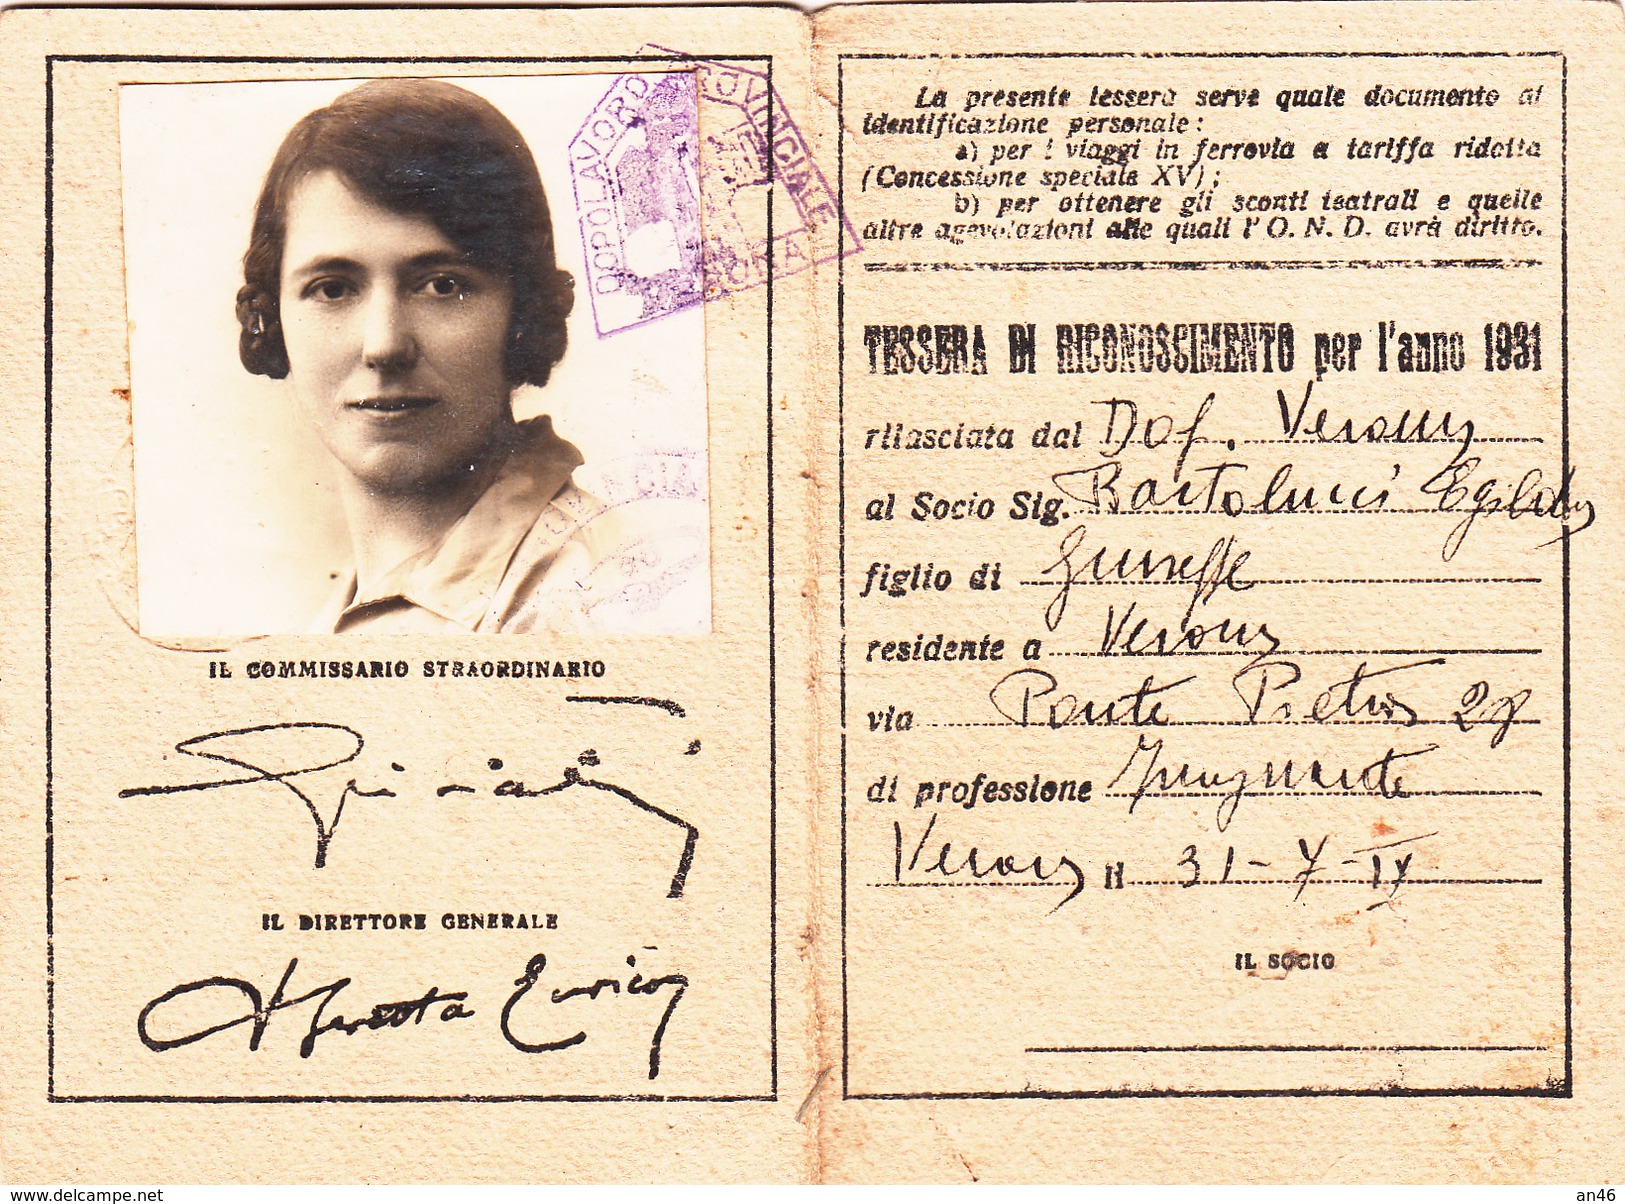 DOPOLAVORO PROVINCIALE
La presente tessera serve quale documento di
identificazione personale:
a) per i viaggi in ferrovia a tariffa ridotta
(Concessione speciale XV);
b) per ottenere gli sconti teatrali e quelle
altre agevolazioni alle quali l'O. N. D. avrà diritto.
TESSERA DI RICONOSCIMENTO per l'anno 1931
rilasciata dal Dop. Verona
al Socio Sig. Bartolucci Egilda
figlio di Giuseppe
residente a Verona
via Ponte Pietra 28
di professione Insegnante
Verona il 31-7-IX
IL SOCIO
IL COMMISSARIO STRAORDINARIO
IL DIRETTORE GENERALE
Beretta Enrico
www.delcampe.net
an46